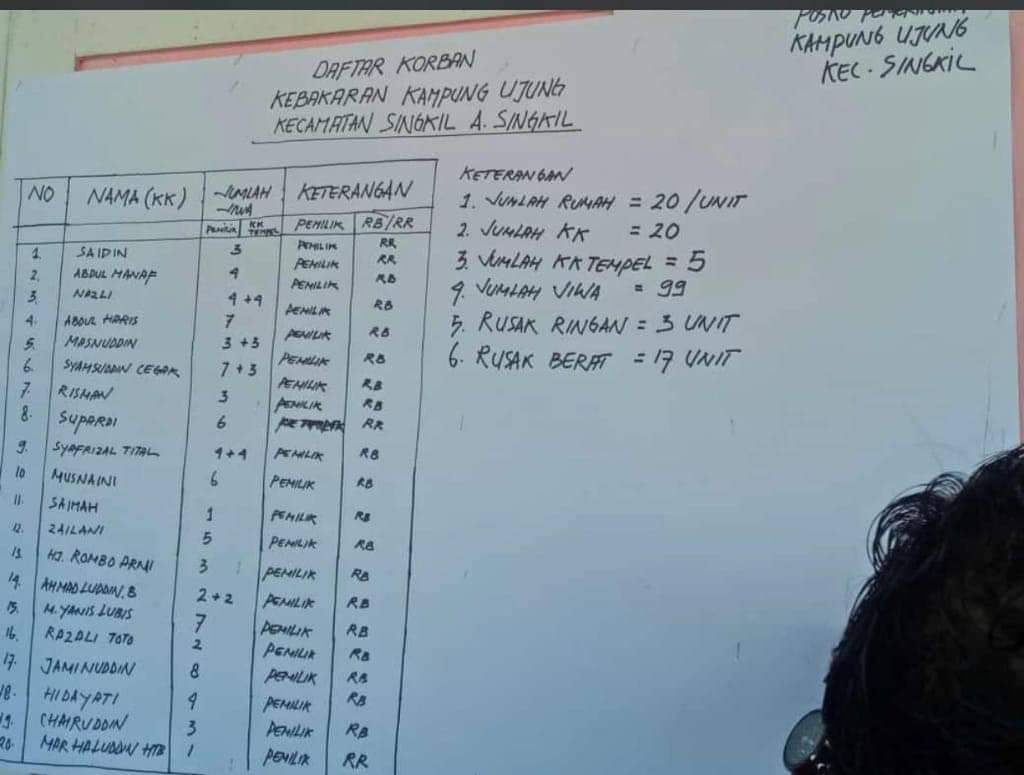 POSKO PEMERINTAH
KAMPUNG UJUNG
KEC. SINGKIL
DAFTAR KORBAN
KEBAKARAN KAMPUNG UJUNG
KECAMATAN SINGKIL A. SINGKIL
NO NAMA (KK) JUMLAH JIWA KETERANGAN
PEMILIK KK TEMPEL PEMILIK RB/RR
1. SAIDIN 3 PEMILIK RR
2. ABDUL MANAF 4 PEMILIK RR
3. NAZLI 4+4 PEMILIK RB
4. ABDUL HARIS 7 PEMILIK RB
5. MASNUDDIN 3+3 PEMILIK RB
6. SYAMSUDDIN CEGAK 7+3 PEMILIK RB
7. RISMAN 3 PEMILIK RB
8. SUPARDI 6 PEMILIK RB
RR
9. SYAFRIZAL TITAL 4+4 PEMILIK RB
10 MUSNAINI 6 PEMILIK RB
11. SAIMAH 1 PEMILIK RB
12. ZAILANI 5 PEMILIK RB
13. HJ. ROMBO ARNI 3 PEMILIK RB
14. AHMADLUDDIN.B 2+2 PEMILIK RB
15. M.YANIS LUBIS 7 PEMILIK RB
16. RAZALI TOTO 2 PEMILIK RB
17. JAMINUDDIN 8 PEMILIK RB
18. HIDAYATI 4 PEMILIK RB
19. CHAIRUDDIN 3 PEMILIK RB
20. MARHALUDDIN HTB 1 PEMILIK RR
KETERANGAN
1. JUMLAH RUMAH = 20/UNIT
2. JUMLAH KK = 20
3. JUMLAH KK TEMPEL = 5
4. JUMLAH JIWA = 99
5. RUSAK RINGAN = 3 UNIT
6. RUSAK BERAT = 17 UNIT